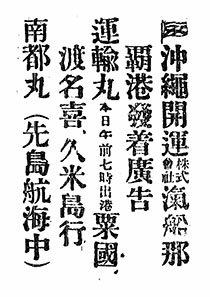 沖繩開運株式會社滊船那
覇港發着廣告
運輸丸本日午前七時出港粟國
渡名喜、久米島行
南都丸(先島航海中)